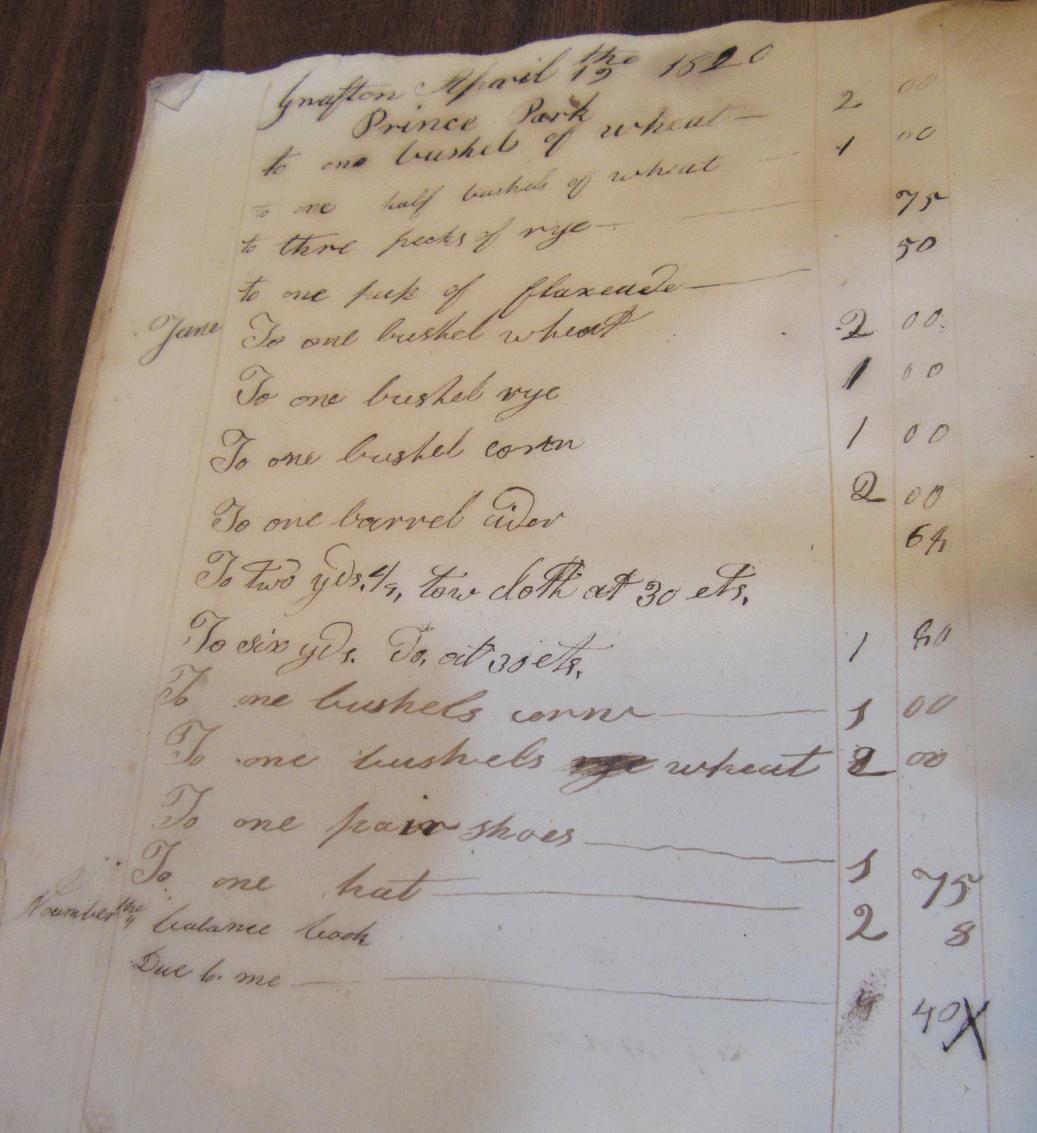 Grafton April the 19 1820
Prince Park
to one bushel of wheat — 2 00
to one half bushels of wheat 1 00
to thre pecks of rye — 75
to one peck of — 50
June To one bushel wheat 2 00
To one bushel rye 1 00
To one bushel corn 1 00
To one barrel cider 2 00
To two yds. tow cloth at 30 cts. 64
To six yds. Do. at 30 cts. 1 80
To one bushels corn — 1 00
To one bushels rye wheat 2 00
To one pair shoes — 1 75
To one hat — 2 8
November the 4 balance book
Due to me — 40